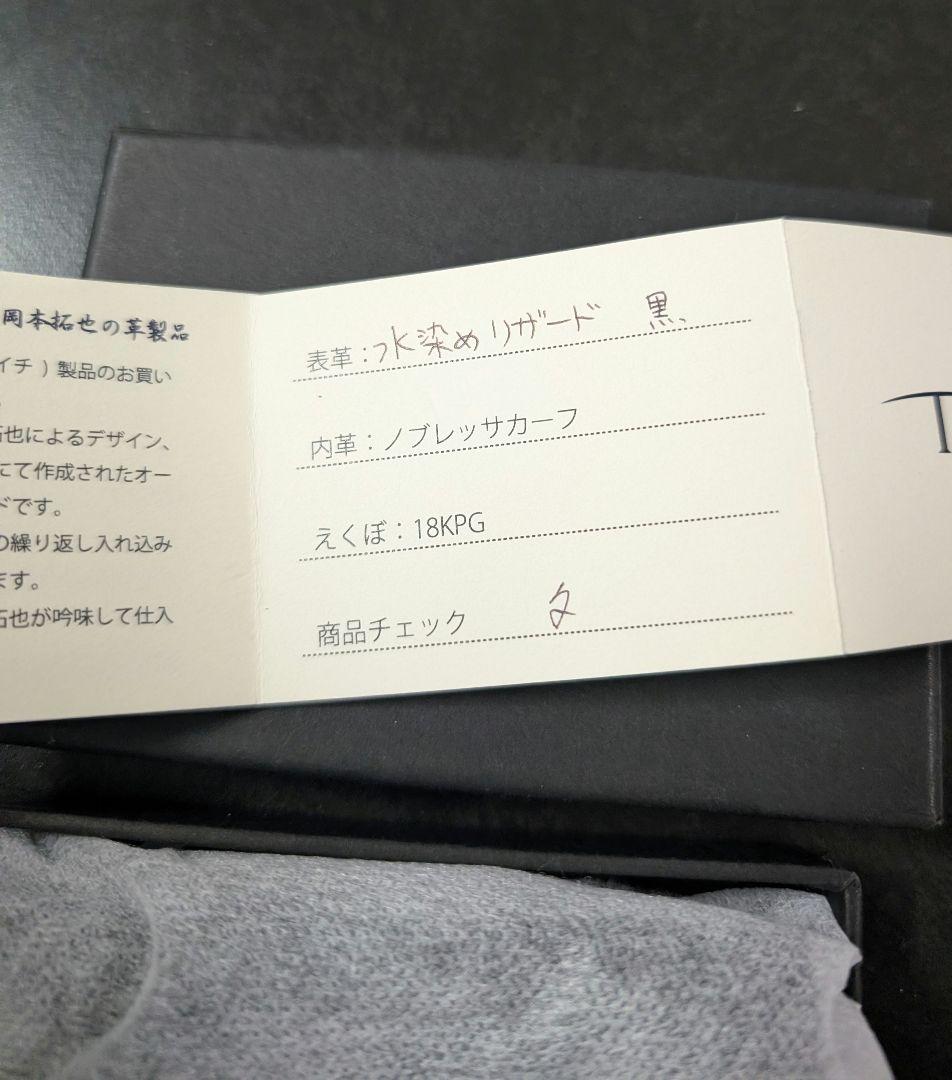 岡本拓也の革製品
イチ)製品のお買い
拓也によるデザイン、
にて作成されたオー
ドです。
の繰り返し入れ込み
ます。
拓也が吟味して仕入
表革:水染めリザード 黒、
内革:ノブレッサカーフ
えくぼ:18KPG
商品チェック
T